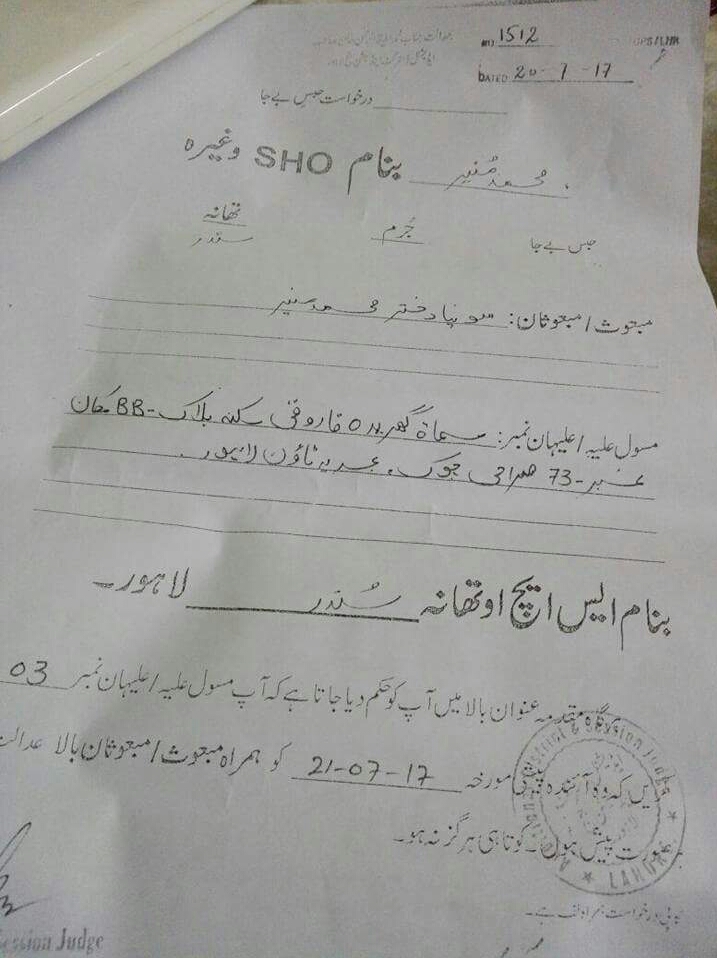 NO 1512
DATED 20-7-17
درخواست حبس بے جا
محمد منیر بنام SHO وغیرہ
حبس بے جا جُرم تھانہ
سندر
مبعوث / مبعوثان: سونیا دختر محمد منیر
مسول علیہ / علیہان نمبر: مسماۃ گھر فاروقی سکنہ بلاک-BB مکان
نمبر-73 صراحی چوک، بحریہ ٹاؤن لاہور۔
بنام ایس ایچ او تھانہ سُندر لاہور۔
مقدمہ عنوان بالا میں آپ کو حکم دیا جاتا ہے کہ آپ مسول علیہ / علیہان نمبر 03
کہ وہ آئندہ پیشی مورخہ 21-07-17 کو ہمراہ مبعوث / مبعوثان بالا عدالت
پیش ہوں۔ کوتاہی ہرگز نہ ہو۔
کاپی درخواست ہمراہ لف ہے۔
District & Session Judge
LAHORE
Session Judge